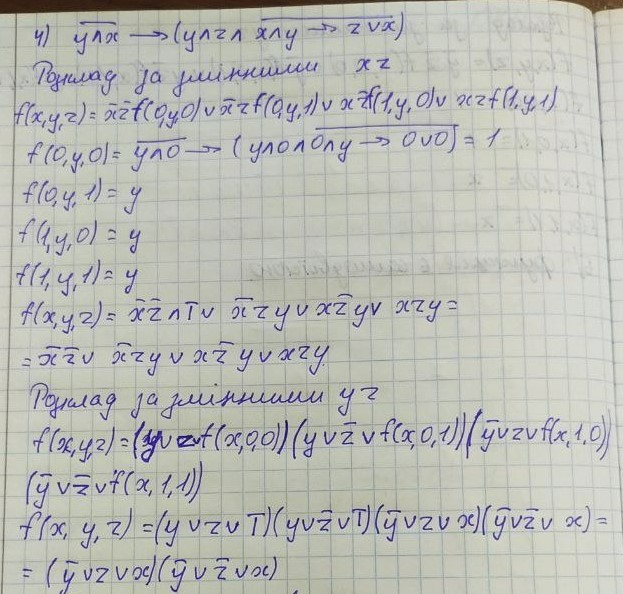 4) \overline{y∧x} → (y∧z∧ \overline{x∧y → z∨x})
Розклад за змінними xz
f(x,y,z) = x̄z̄f(0,y,0)∨x̄zf(0,y,1)∨xz̄f(1,y,0)∨xzf(1,y,1)
f(0,y,0) = \overline{y∧0} → (y∧0∧\overline{0∧y → 0∨0}) = 1
f(0,y,1) = y
f(1,y,0) = y
f(1,y,1) = y
f(x,y,z) = x̄z̄∧1∨ x̄zy∨xz̄y∨ xzy =
= x̄z̄∨ x̄zy∨xz̄y∨xzy
Розклад за змінними yz
f(x,y,z) = (y∨z∨f(x,0,0))(y∨z̄∨f(x,0,1))(ȳ∨z∨f(x,1,0))
(ȳ∨z̄∨f(x,1,1))
f(x,y,z) = (y∨z∨1)(y∨z̄∨1)(ȳ∨z∨x)(ȳ∨z̄∨x) =
= (ȳ∨z∨x)(ȳ∨z̄∨x)